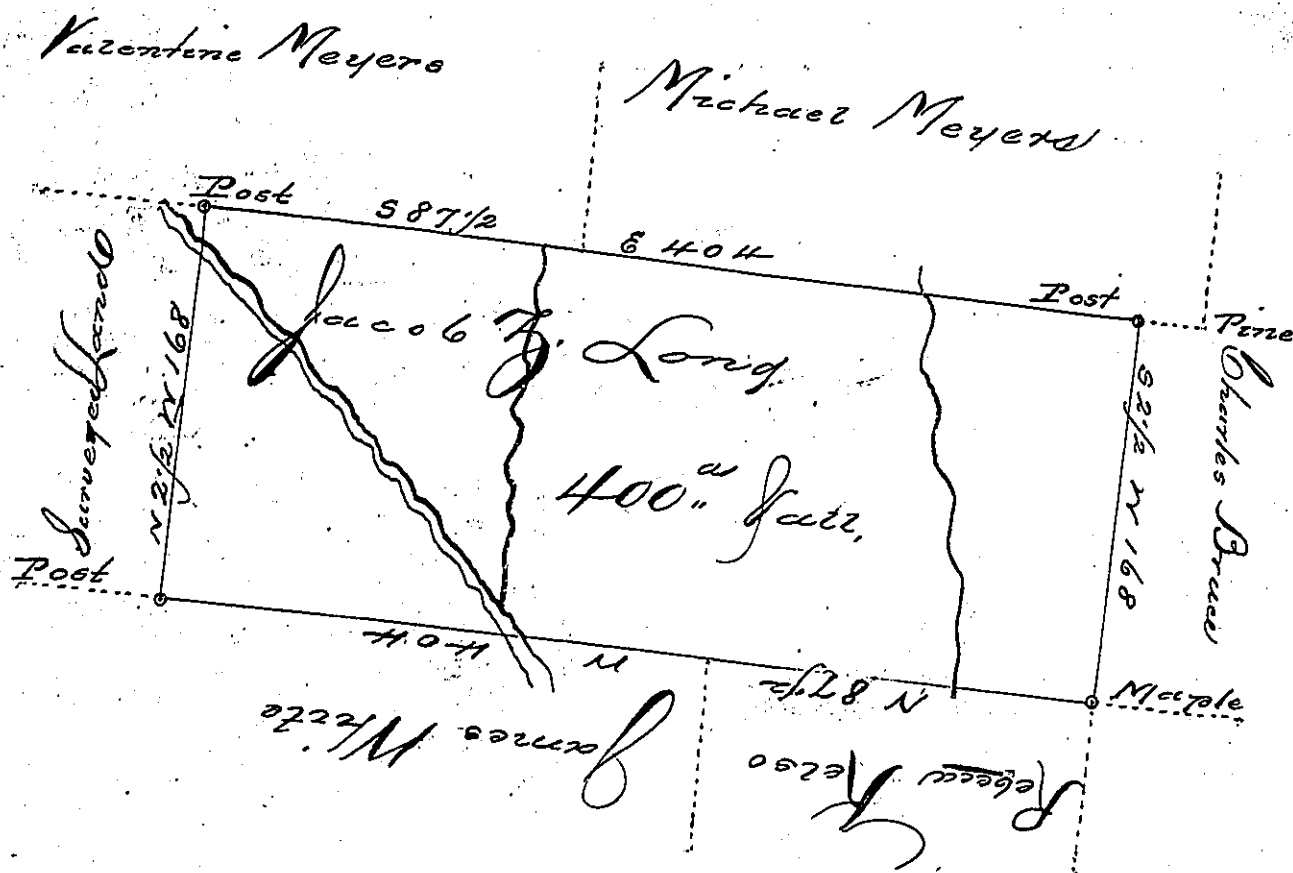 Valentine Meyers
Michael Meyers
Post
S 87 1/2 E 404
Post
Pine
Surveyed Land
N 2 1/2 W 168
Jacob Z. Long
400 as Patt.
S 2 1/2 W 168
Charles Bruce
Post
N 87 1/2 W 404
Maple
James White
Rebecca Kelso